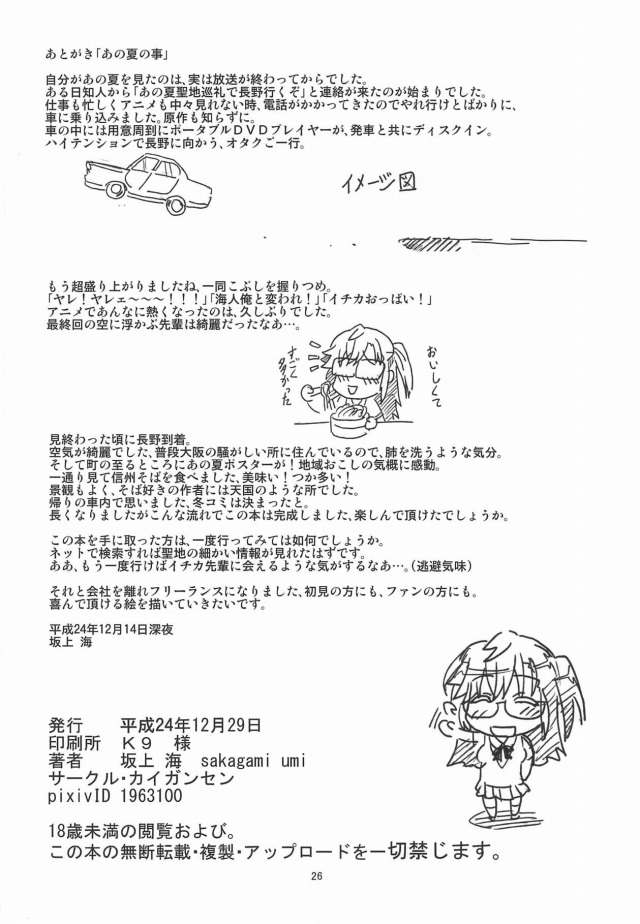 あとがき「あの夏の事」
自分があの夏を見たのは、実は放送が終わってからでした。
ある日知人から「あの夏聖地巡礼で長野行くぞ」と連絡が来たのが始まりでした。
仕事も忙しくアニメも中々見れない時、電話がかかってきたのでやれ行けとばかりに、
車に乗り込みました。原作も知らずに。
車の中には用意周到にポータブルDVDプレイヤーが、発車と共にディスクイン。
ハイテンションで長野に向かう、オタクご一行。
イメージ図
もう超盛り上がりましたね、一同こぶしを握りつめ。
「ヤレ！ヤレェ～～～！！！」「海人俺と変われ！」「イチカおっぱい！」
アニメであんなに熱くなったのは、久しぶりでした。
最終回の空に浮かぶ先輩は綺麗だったなあ…。
おいしくて
すごく
多かった
見終わった頃に長野到着。
空気が綺麗でした、普段大阪の騒がしい所に住んでいるので、肺を洗うような気分。
そして町の至るところにあの夏ポスターが！地域おこしの気概に感動。
一通り見て信州そばを食べました、美味い！つか多い！
景観もよく、そば好きの作者には天国のような所でした。
帰りの車内で思いました、冬コミは決まったと。
長くなりましたがこんな流れでこの本は完成しました、楽しんで頂けたでしょうか。
この本を手に取った方は、一度行ってみては如何でしょうか。
ネットで検索すれば聖地の細かい情報が見れたはずです。
ああ、もう一度行けばイチカ先輩に会えるような気がするなあ…。（逃避気味）
それと会社を離れフリーランスになりました、初見の方にも、ファンの方にも。
喜んで頂ける絵を描いていきたいです。
平成24年12月14日深夜
坂上 海
発行 平成24年12月29日
印刷所 K9 様
著者 坂上 海 sakagami umi
サークル・カイガンセン
pixivID 1963100
18歳未満の閲覧および。
この本の無断転載・複製・アップロードを一切禁じます。
26